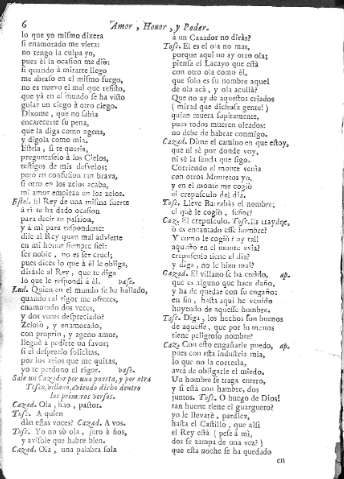 6 Amor, Honor, y Poder.
lo que yo mismo dixera
si enamorado me viera:
no tengo la culpa yo,
pues èl la ocasion me diò:
si quando à mirarte llego
me abraso en el mismo fuego,
no es nuevo el mal que resisto,
que yà en el mundo se ha visto
guiar un ciego à otro ciego.
Dixome, que no sabia
encarecerte su pena,
que la diga como agena,
y digola como mia.
Estela, si te queria,
preguntaselo à los Cielos,
testigos de mis desvelos;
pero en confusion tan brava,
si otro en los zelos acaba,
mi amor empieza en los zelos.
Estel. El Rey de una misma suerte
à ti te ha dado ocasion
para decir tu passion,
y à mi para responderte:
dile al Rey quan mal advierte
en mi honor siempre fiel:
ser noble, no es ser cruel,
pues dices lo que à èl le obliga,
dirásle al Rey, que te diga
lo que le respondí à èl. vase.
Enr. Quien en el mundo se ha hallado,
quando tal rigor me ofreces,
enamorado dos veces,
y dos veces despreciado?
Zeloso, y enamorado,
con proprio, y ageno amor,
lleguè à pedirte un favor;
si el desprecio solicitas,
por los zelos que me quitas,
yo te perdono el rigor. vase.
Sale un Cazador por una puerta, y por otra
Tosco, villano, estando dicho dentro
los primeros versos.
Cazad. Ola, hao, pastor.
Tosc. A quien
dàn essas voces? Cazad. A vos.
Tosc. Yo no sò ola, juro à ños,
y avisole que habre bien.
Cazad. Ola, una palabra sola
à un Cazador no diràs?
Tosc. El es el ola no mas,
porque aqui no ay otro ola;
piensa el Lacayo que està
con otro ola como èl,
que solo es su nombre aquel
de ola acà, y ola acullà?
Que no ay de aquestos criados
(mirad que dichosa gente!)
quien muera supitamente,
pues todos mueren oleados:
no debe de habrar conmigo.
Cazad. Dime el camino en que estoy,
que ni sè por donde voy,
ni sè la senda que sigo.
Corriendo el monte venia
con otros Monteros yo,
y en el monte me cogiò
el crepusculo del dia.
Tosc. Lleve Barrabàs el nombre;
el què le cogiò, señor?
Caz. El crepusculo. Tosc. Es traydor,
ò es encantado esse hombre?
Y como le cogiò? ay tal!
aquesto en el monte avia?
crepusculo tiene el dia?
y diga, no le hizo mal?
Cazad. El villano se ha creido, ap.
que es alguno que hace daño,
y ha de quedar con su engaño:
en fin, hasta aqui he venido
huyendo de aquesse hombre.
Tosc. Diga, los hechos son buenos
de aquesse, que por lo menos
tiene peligroso nombre?
Caz. Con esto engañarle puedo, ap.
pues con esta industria mia,
lo que no la cortesia,
avrà de obligarle el miedo.
Un hombre se traga entero,
y si està con hambre, dos
juntos. Tosc. O huego de Dios!
tan huerte tiene el guarguero?
yo le llevarè, pardiez,
hasta el Castillo, que allì
el Rey està (pese à mì,
dos se zampa de una vez?)
que esta noche se ha quedado
en